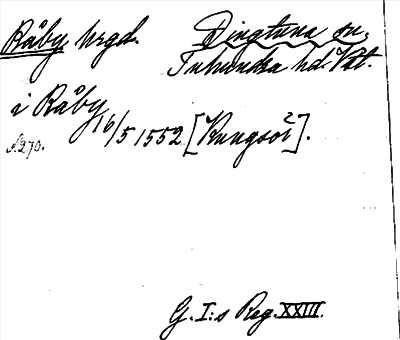 Råby, hrgd. Dingtuna sn,
Tuhundra hd. Vstl.
i Råby
16/5 1552 [Kungsör].
s. 270.
G. I:s Reg. XXIII.